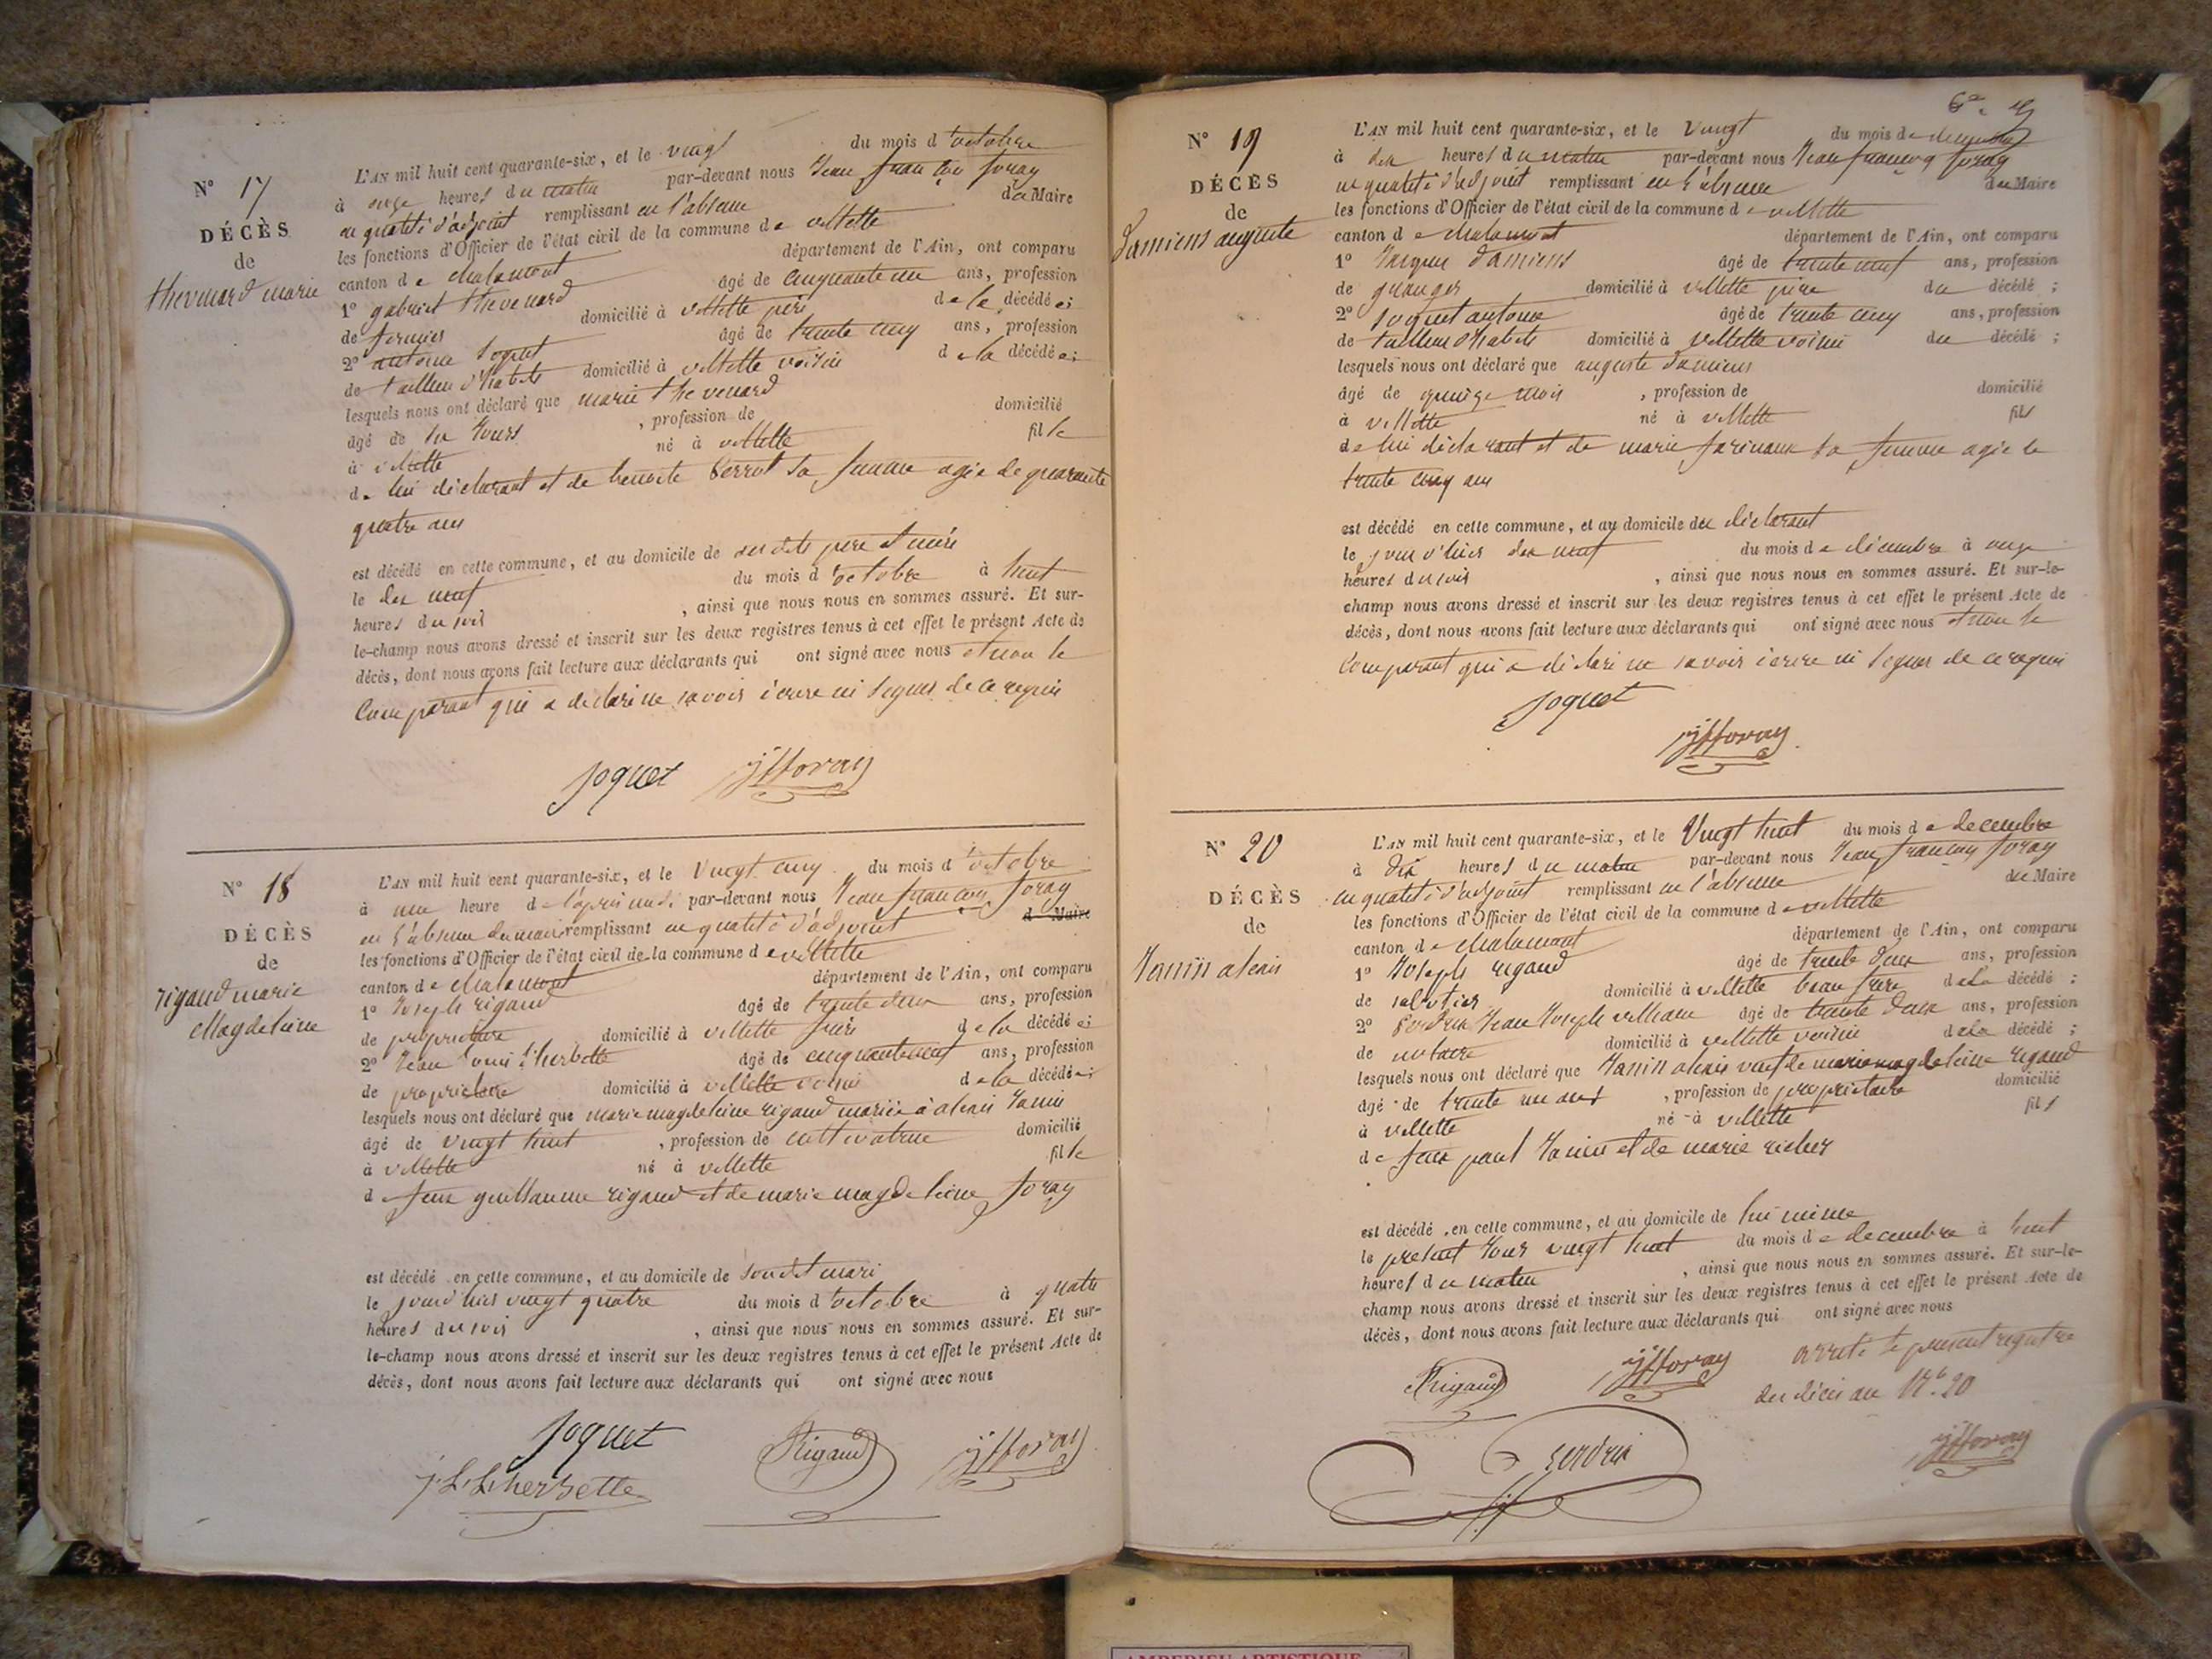 N° 17
DÉCÈS
de
thevenard marie
L'AN mil huit cent quarante-six, et le vingt du mois d'octobre
à onze heures du matin par-devant nous Jean françois foray
en qualité d'adjoint remplissant en l'absence du Maire
les fonctions d'Officier de l'état civil de la commune de villette
canton de chalamont département de l'Ain, ont comparu
1° gabriel thevenard âgé de cinquante un ans, profession
de fermier domicilié à villette père de la décédée;
2° antoine Joquet âgé de trente cinq ans, profession
de tailleur d'habits domicilié à villette voisin de la décédée;
lesquels nous ont déclaré que marie thevenard
âgé de six Jours, profession de domicilié
à villette né à villette fille
de lui déclarant et de benoite Perrot sa femme agée de quarante
quatre ans
est décédé en cette commune, et au domicile de ses dits père et mère
le dix neuf du mois d'octobre à huit
heures du soir, ainsi que nous nous en sommes assuré. Et sur-
le-champ nous avons dressé et inscrit sur les deux registres tenus à cet effet le présent Acte de
décès, dont nous avons fait lecture aux déclarants qui ont signé avec nous et non le
Comparant qui a déclaré ne savoir écrire ni signer de ce requis
Joquet jffforay
N° 18
DÉCÈS
de
rigaud marie
Magdeleine
L'AN mil huit cent quarante-six, et le Vingt cinq du mois d'octobre
à une heure de l'après midi par-devant nous Jean françois foray
en l'absence du maire remplissant en qualité d'adjoint d Maire
les fonctions d'Officier de l'état civil de la commune de villette
canton de chalamont département de l'Ain, ont comparu
1° Joseph rigaud âgé de trente deux ans, profession
de propriétaire domicilié à villette frère de la décédée;
2° Jean Louis l'herbette âgé de cinquante ans, profession
de propriétaire domicilié à villette voisin de la décédée;
lesquels nous ont déclaré que marie magdeleine rigaud mariée à alexis Janin
âgé de vingt huit, profession de cultivatrice domicilié
à villette né à villette fille
de feux guillaume rigaud et de marie magdeleine foray
est décédé en cette commune, et au domicile de son dit mari
le jour d'hier vingt quatre du mois d'octobre à quatre
heures du soir, ainsi que nous nous en sommes assuré. Et sur-
le-champ nous avons dressé et inscrit sur les deux registres tenus à cet effet le présent Acte de
décès, dont nous avons fait lecture aux déclarants qui ont signé avec nous
Joquet
j.L.Lherbette Rigaud jffforay
N° 19
DÉCÈS
de
Damiens auguste
L'AN mil huit cent quarante-six, et le Vingt du mois de décembre
à dix heures du matin par-devant nous Jean françois foray
en qualité d'adjoint remplissant en l'absence du Maire
les fonctions d'Officier de l'état civil de la commune de villette
canton de chalamont département de l'Ain, ont comparu
1° Jacques Damiens âgé de trente neuf ans, profession
de granger domicilié à villette père du décédé;
2° Joquet antoine âgé de trente cinq ans, profession
de tailleur d'habits domicilié à villette voisin du décédé;
lesquels nous ont déclaré que auguste Damiens
âgé de quinze mois, profession de domicilié
à villette né à villette fils
de lui déclarant et de marie sa femme agée de
trente cinq ans
est décédé en cette commune, et au domicile du déclarant
le jour d'hier dix neuf du mois de décembre à onze
heures du soir, ainsi que nous nous en sommes assuré. Et sur-le-
champ nous avons dressé et inscrit sur les deux registres tenus à cet effet le présent Acte de
décès, dont nous avons fait lecture aux déclarants qui ont signé avec nous et non le
Comparant qui a déclaré ne savoir écrire ni signer de ce requis
Joquet
jffforay
N° 20
DÉCÈS
de
Janin alexis
L'AN mil huit cent quarante-six, et le Vingt huit du mois de décembre
à dix heures du matin par-devant nous Jean françois foray
en qualité d'adjoint remplissant en l'absence du Maire
les fonctions d'Officier de l'état civil de la commune de villette
canton de chalamont département de l'Ain, ont comparu
1° Joseph rigaud âgé de trente deux ans, profession
de sabotier domicilié à villette beau frère de la décédé;
2° Jean Joseph âgé de trente deux ans, profession
de notaire domicilié à villette voisin de la décédé;
lesquels nous ont déclaré que Janin alexis veuf de marie magdeleine rigaud
âgé de trente un ans, profession de propriétaire domicilié
à villette né à villette fils
de feux paul Janin et de marie richer
est décédé en cette commune, et au domicile de lui même
le présent Jour vingt huit du mois de décembre à huit
heures du matin, ainsi que nous nous en sommes assuré. Et sur-le-
champ nous avons dressé et inscrit sur les deux registres tenus à cet effet le présent Acte de
décès, dont nous avons fait lecture aux déclarants qui ont signé avec nous
Rigaud jffforay arrêté le présent registre
des décès au N° 20
jffforay
AMBERIEU ARTISTIQUE